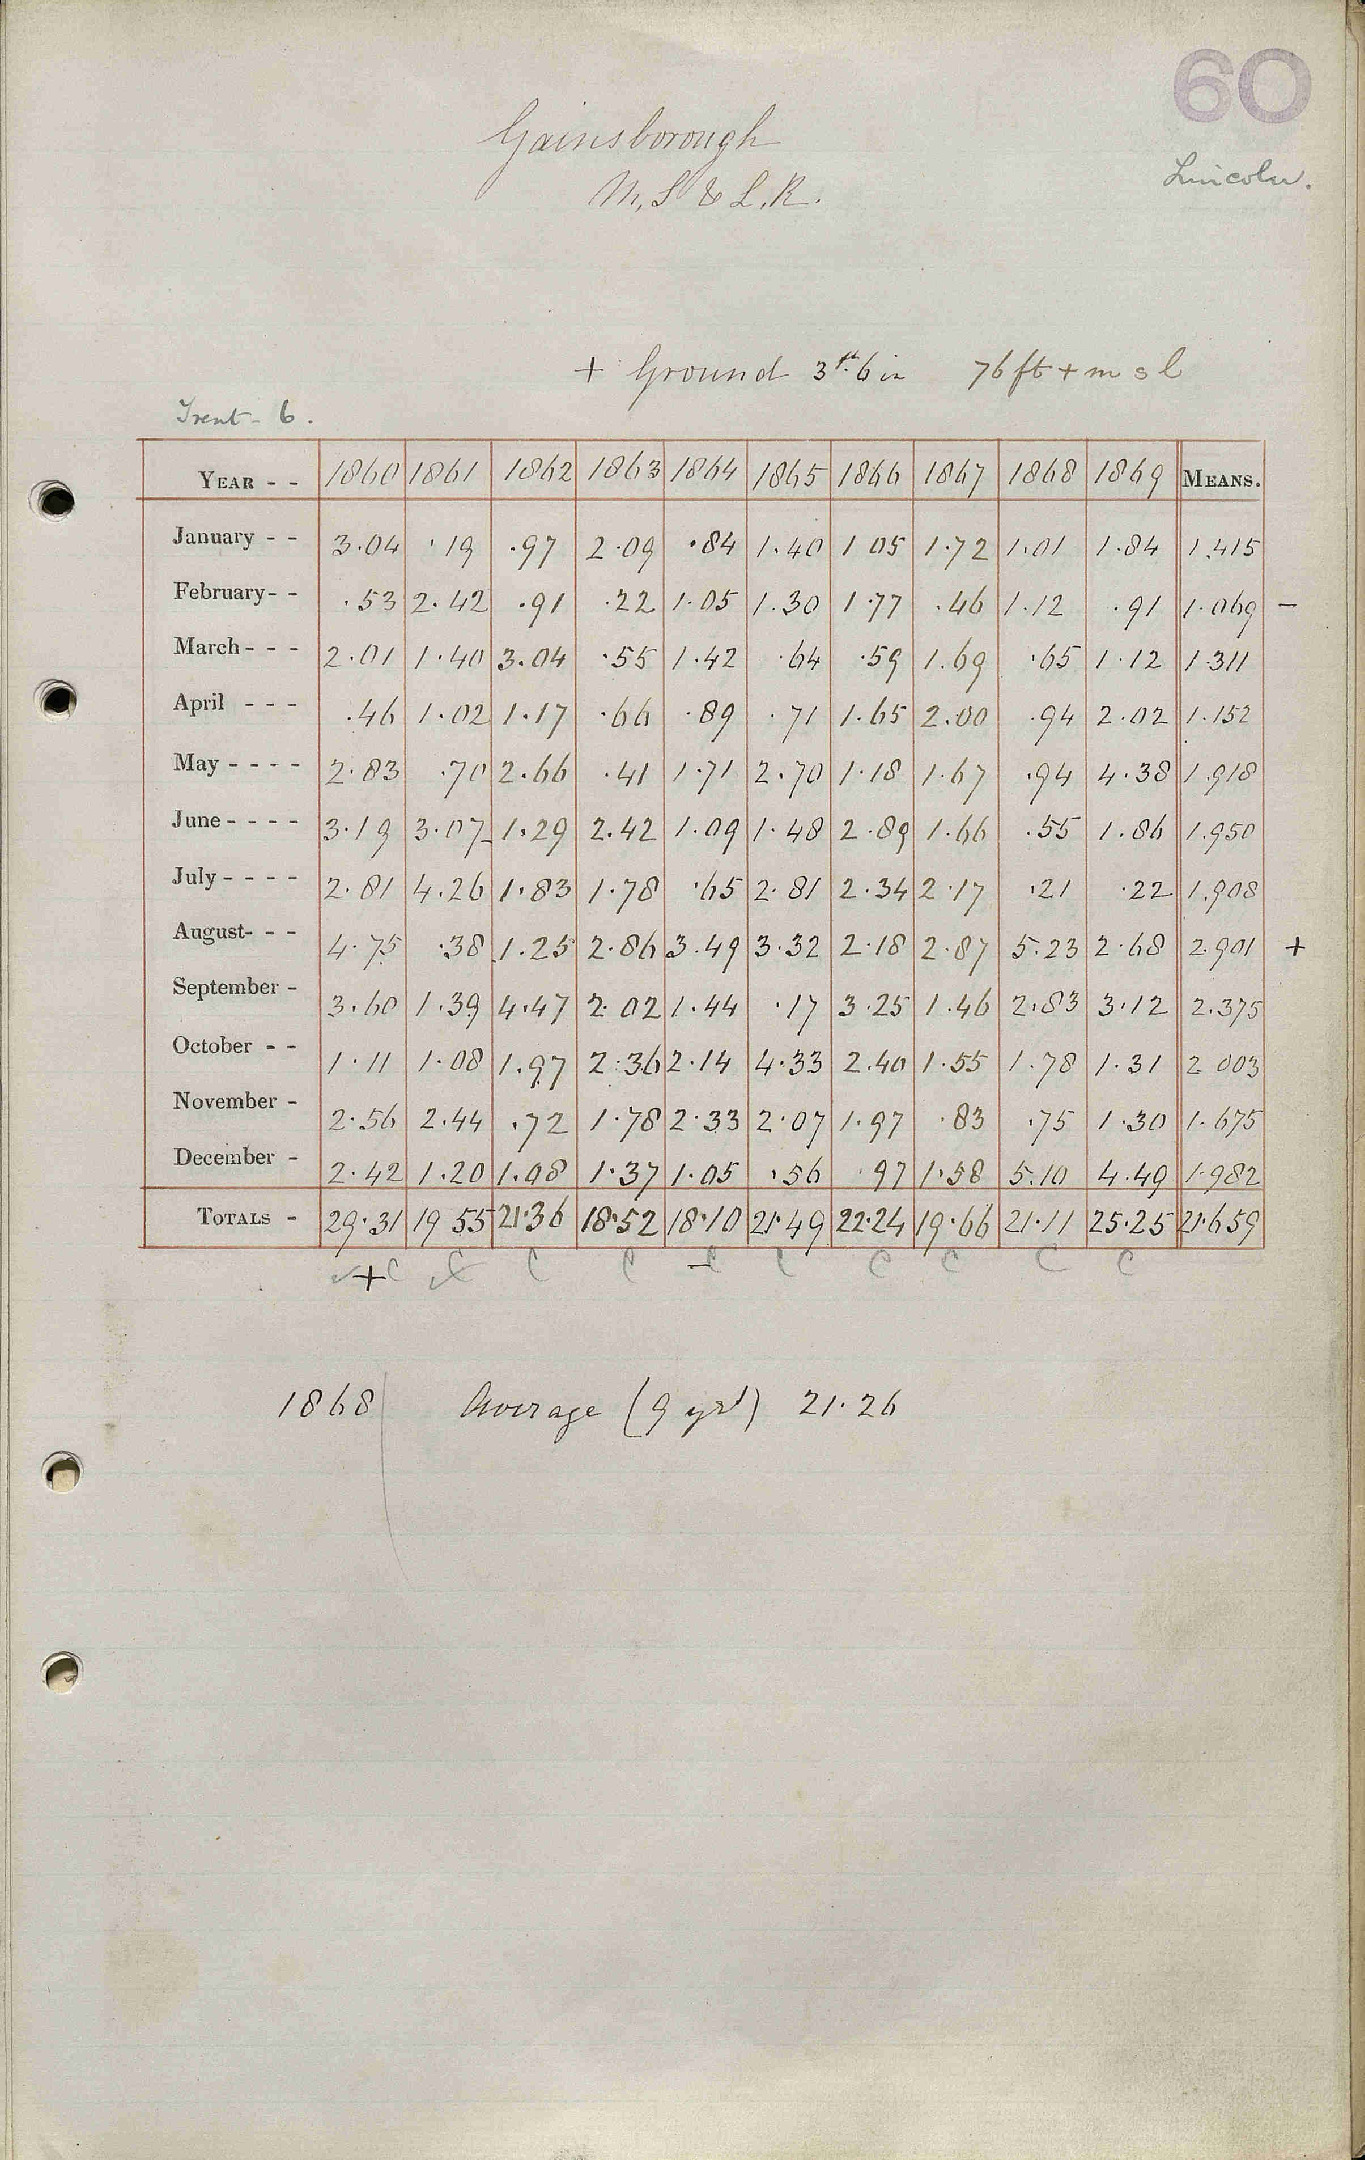 60
Gainsborough
Lincoln.
M. S & L. R.
+ Ground 3ft. 6 in 76 ft + m s l
Trent - 6.
YEAR - - 1860 1861 1862 1863 1864 1865 1866 1867 1868 1869 MEANS.
January - - 3.04 .19 .97 2.09 .84 1.40 1 05 1.72 1.01 1.84 1.415
February- - .53 2.42 .91 .22 1.05 1.30 1.77 .46 1.12 .91 1.069 -
March - - - 2.01 1.40 3.04 .55 1.42 .64 .59 1.69 .65 1.12 1.311
April - - - .46 1.02 1.17 .66 .89 .71 1.65 2.00 .94 2.02 1.152
May - - - - 2.83 .70 2.66 .41 1.71 2.70 1.18 1.67 .94 4.38 1.918
June - - - - 3.19 3.07 1.29 2.42 1.09 1.48 2.89 1.66 .55 1.86 1.950
July - - - - 2.81 4.26 1.83 1.78 .65 2.81 2.34 2.17 .21 .22 1.908
August- - - 4.75 .38 1.25 2.86 3.49 3.32 2.18 2.87 5.23 2.68 2.901 +
September - 3.60 1.39 4.47 2.02 1.44 .17 3.25 1.46 2.83 3.12 2.375
October - - 1.11 1.08 1.97 2.36 2.14 4.33 2.40 1.55 1.78 1.31 2 003
November - 2.56 2.44 .72 1.78 2.33 2.07 1.97 .83 .75 1.30 1.675
December - 2.42 1.20 1.08 1.37 1.05 .56 .97 1.58 5.10 4.49 1.982
TOTALS - 29.31 19 55 21.36 18.52 18.10 21.49 22.24 19.66 21.11 25.25 21.659
+ c c c - c c c c c c
1868 Average (9 yrs) 21.26